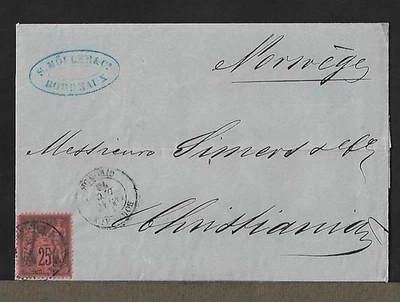 S. MÖLLER & Cº
BORDEAUX
Norvège
Messieurs Simers & Co
Christiania
25